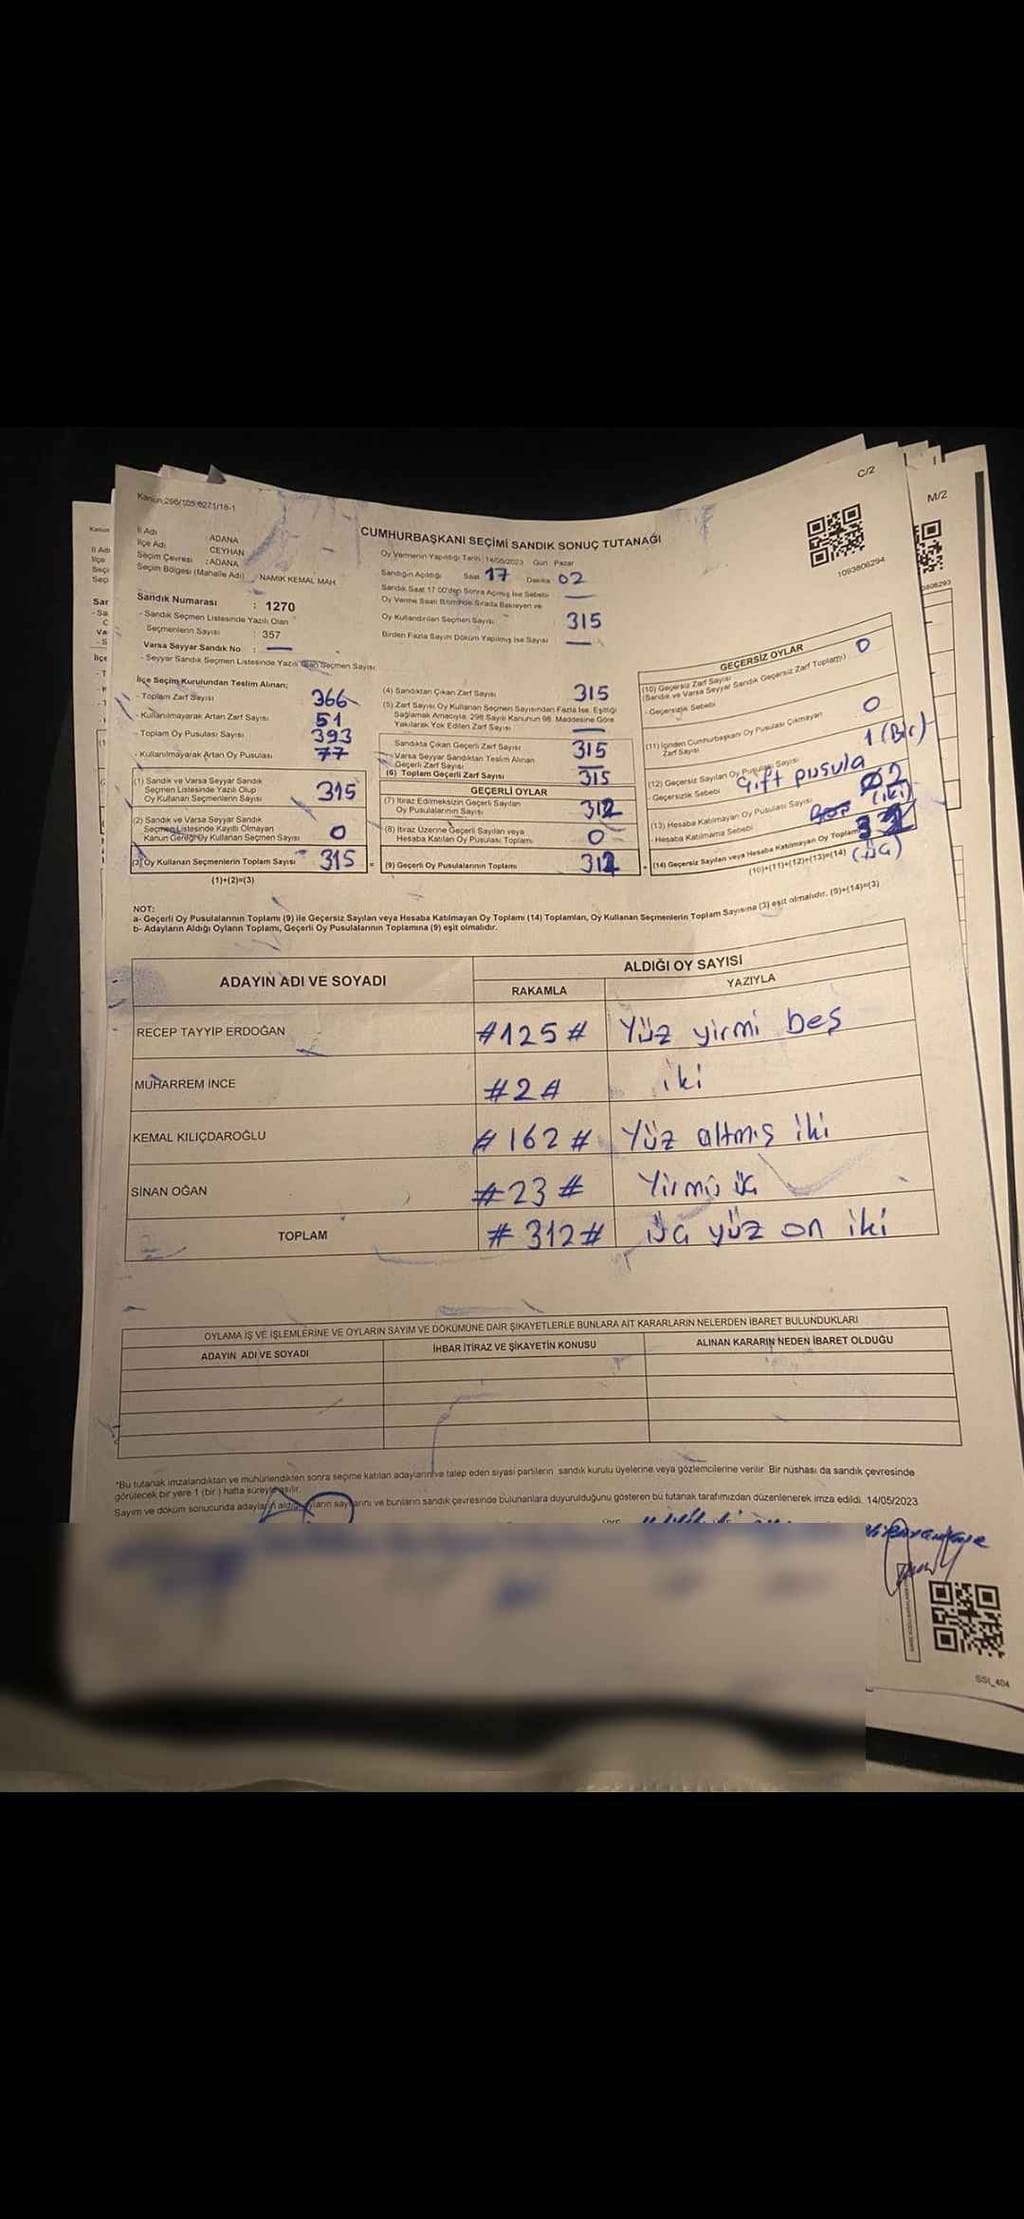 C/2
M/2
Kanun:298/105;6271/18-1
CUMHURBAŞKANI SEÇİMİ SANDIK SONUÇ TUTANAĞI
1093806294
İl Adı : ADANA
İlçe Adı : CEYHAN
Seçim Çevresi : ADANA
Seçim Bölgesi (Mahalle Adı) : NAMIK KEMAL MAH.
Oy Vermenin Yapıldığı Tarih : 14/05/2023 Gün Pazar
Sandığın Açıldığı Saat 17 Dakika 02
Sandık Saat 17.00'den Sonra Açılmış İse Sebebi
Oy Verme Saati Bitiminde Sırada Bekleyen ve
Oy Kullandırılan Seçmen Sayısı 315
Birden Fazla Sayım Döküm Yapılmış İse Sayısı —
Sandık Numarası : 1270
- Sandık Seçmen Listesinde Yazılı Olan
Seçmenlerin Sayısı : 357
Varsa Seyyar Sandık No : —
- Seyyar Sandık Seçmen Listesinde Yazılı Olan Seçmen Sayısı
İlçe Seçim Kurulundan Teslim Alınan;
- Toplam Zarf Sayısı 366
- Kullanılmayarak Artan Zarf Sayısı 51
- Toplam Oy Pusulası Sayısı 393
- Kullanılmayarak Artan Oy Pusulası 77
(1) Sandık ve Varsa Seyyar Sandık
Seçmen Listesinde Yazılı Olup
Oy Kullanan Seçmenlerin Sayısı 315
(2) Sandık ve Varsa Seyyar Sandık
Seçmen Listesinde Kayıtlı Olmayan
Kanun Gereği Oy Kullanan Seçmen Sayısı 0
(3) Oy Kullanan Seçmenlerin Toplam Sayısı 315 =
(1)+(2)=(3)
(4) Sandıktan Çıkan Zarf Sayısı 315
(5) Zarf Sayısı Oy Kullanan Seçmen Sayısından Fazla İse, Eşitliği
Sağlamak Amacıyla, 298 Sayılı Kanunun 98. Maddesine Göre
Yakılarak Yok Edilen Zarf Sayısı —
Sandıkta Çıkan Geçerli Zarf Sayısı 315
Varsa Seyyar Sandıktan Teslim Alınan
Geçerli Zarf Sayısı —
(6) Toplam Geçerli Zarf Sayısı 315
GEÇERLİ OYLAR
(7) İtiraz Edilmeksizin Geçerli Sayılan
Oy Pusulalarının Sayısı 312
(8) İtiraz Üzerine Geçerli Sayılan veya
Hesaba Katılan Oy Pusulası Toplamı 0
(9) Geçerli Oy Pusulalarının Toplamı 312 +
GEÇERSİZ OYLAR
(10) Geçersiz Zarf Sayısı
(Sandık ve Varsa Seyyar Sandık Geçersiz Zarf Toplamı) 0
- Geçersizlik Sebebi
(11) İçinden Cumhurbaşkanı Oy Pusulası Çıkmayan
Zarf Sayısı 0
(12) Geçersiz Sayılan Oy Pusulası Sayısı 1 (Bir)
- Geçersizlik Sebebi Çift pusula
(13) Hesaba Katılmayan Oy Pusulası Sayısı 02 (iki)
- Hesaba Katılmama Sebebi Boş
(14) Geçersiz Sayılan veya Hesaba Katılmayan Oy Toplamı (üç)
(10)+(11)+(12)+(13)=(14)
NOT:
a- Geçerli Oy Pusulalarının Toplamı (9) ile Geçersiz Sayılan veya Hesaba Katılmayan Oy Toplamı (14) Toplamları, Oy Kullanan Seçmenlerin Toplam Sayısına (3) eşit olmalıdır. (9)+(14)=(3)
b- Adayların Aldığı Oyların Toplamı, Geçerli Oy Pusulalarının Toplamına (9) eşit olmalıdır.
ADAYIN ADI VE SOYADI
ALDIĞI OY SAYISI
RAKAMLA YAZIYLA
RECEP TAYYİP ERDOĞAN #125# Yüz yirmi beş
MUHARREM İNCE #2# iki
KEMAL KILIÇDAROĞLU #162# Yüz altmış iki
SİNAN OĞAN #23# Yirmi üç
TOPLAM #312# üç yüz on iki
OYLAMA İŞ VE İŞLEMLERİNE VE OYLARIN SAYIM VE DÖKÜMÜNE DAİR ŞİKAYETLERLE BUNLARA AİT KARARLARIN NELERDEN İBARET BULUNDUKLARI
ADAYIN ADI VE SOYADI İHBAR İTİRAZ VE ŞİKAYETİN KONUSU ALINAN KARARIN NEDEN İBARET OLDUĞU
*Bu tutanak imzalandıktan ve mühürlendikten sonra seçime katılan adayların ve talep eden siyasi partilerin sandık kurulu üyelerine veya gözlemcilerine verilir. Bir nüshası da sandık çevresinde
görülecek bir yere 1 (bir) hafta süreyle asılır.
Sayım ve döküm sonucunda adayların aldığı oyların sayılarını ve bunların sandık çevresinde bulunanlara duyurulduğunu gösteren bu tutanak tarafımızdan düzenlenerek imza edildi. 14/05/2023
SSI_404